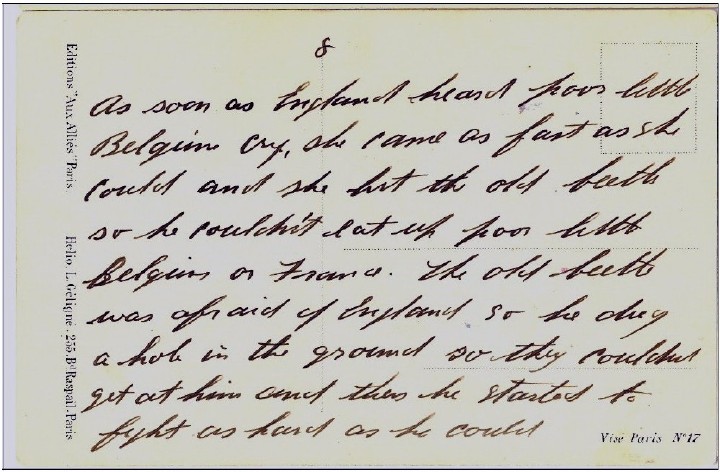 8
As soon as England heard poor little
Belgium cry, she came as fast as she
could and she hit the old beetle
so he couldn't eat up poor little
Belgium or France. The old beetle
was afraid of England so he dug
a hole in the ground so they couldn't
get at him and then he started to
fight as hard as he could
Editions "Aux Alliés" Paris.
Helio. L. Géligné. 255. Bd Raspail. Paris
Visé Paris N° 17